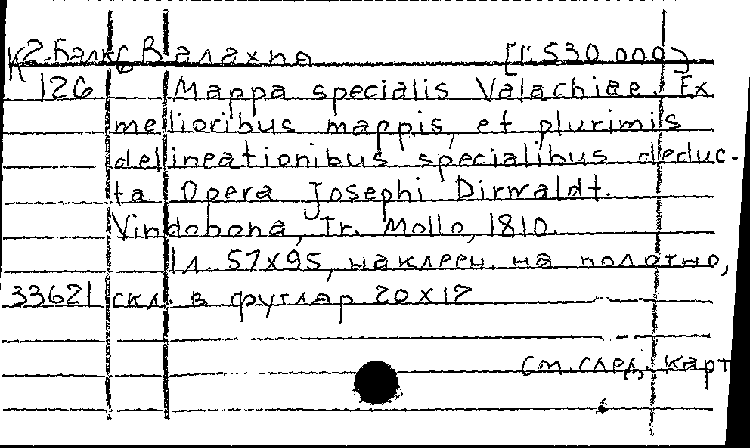 К2-Балк6 Валахпа [1:530 000]
126 Mappa specialis Valachiae. Ex
melioribus mappis, et plurimis
delineationibus specialibus deduc-
ta Opera Josephi Dirwaldt.
Vindobona, Tr. Mollo, 1810.
1 л. 57х95, наклеен. на полотно,
33621 скл. в футлар 20х12
см. след. карт